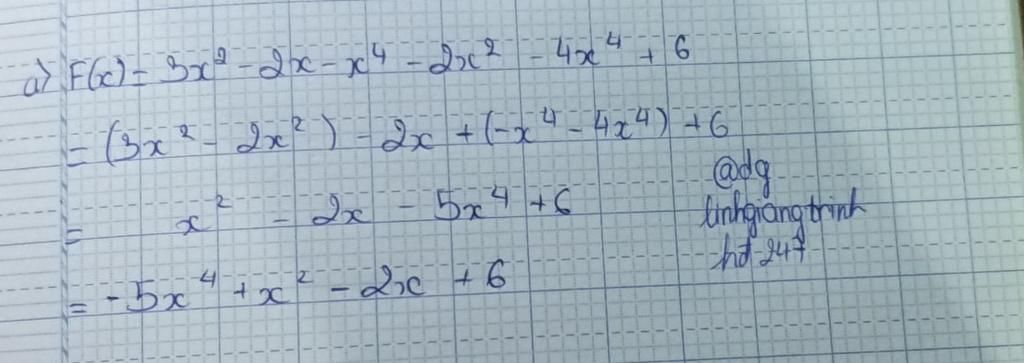 a) F(x) = 3x² - 2x - x⁴ - 2x² - 4x⁴ + 6
= (3x² - 2x²) - 2x + (-x⁴ - 4x⁴) + 6
= x² - 2x - 5x⁴ + 6
= -5x⁴ + x² - 2x + 6
@dg
linhgiangtrinh
hd 247